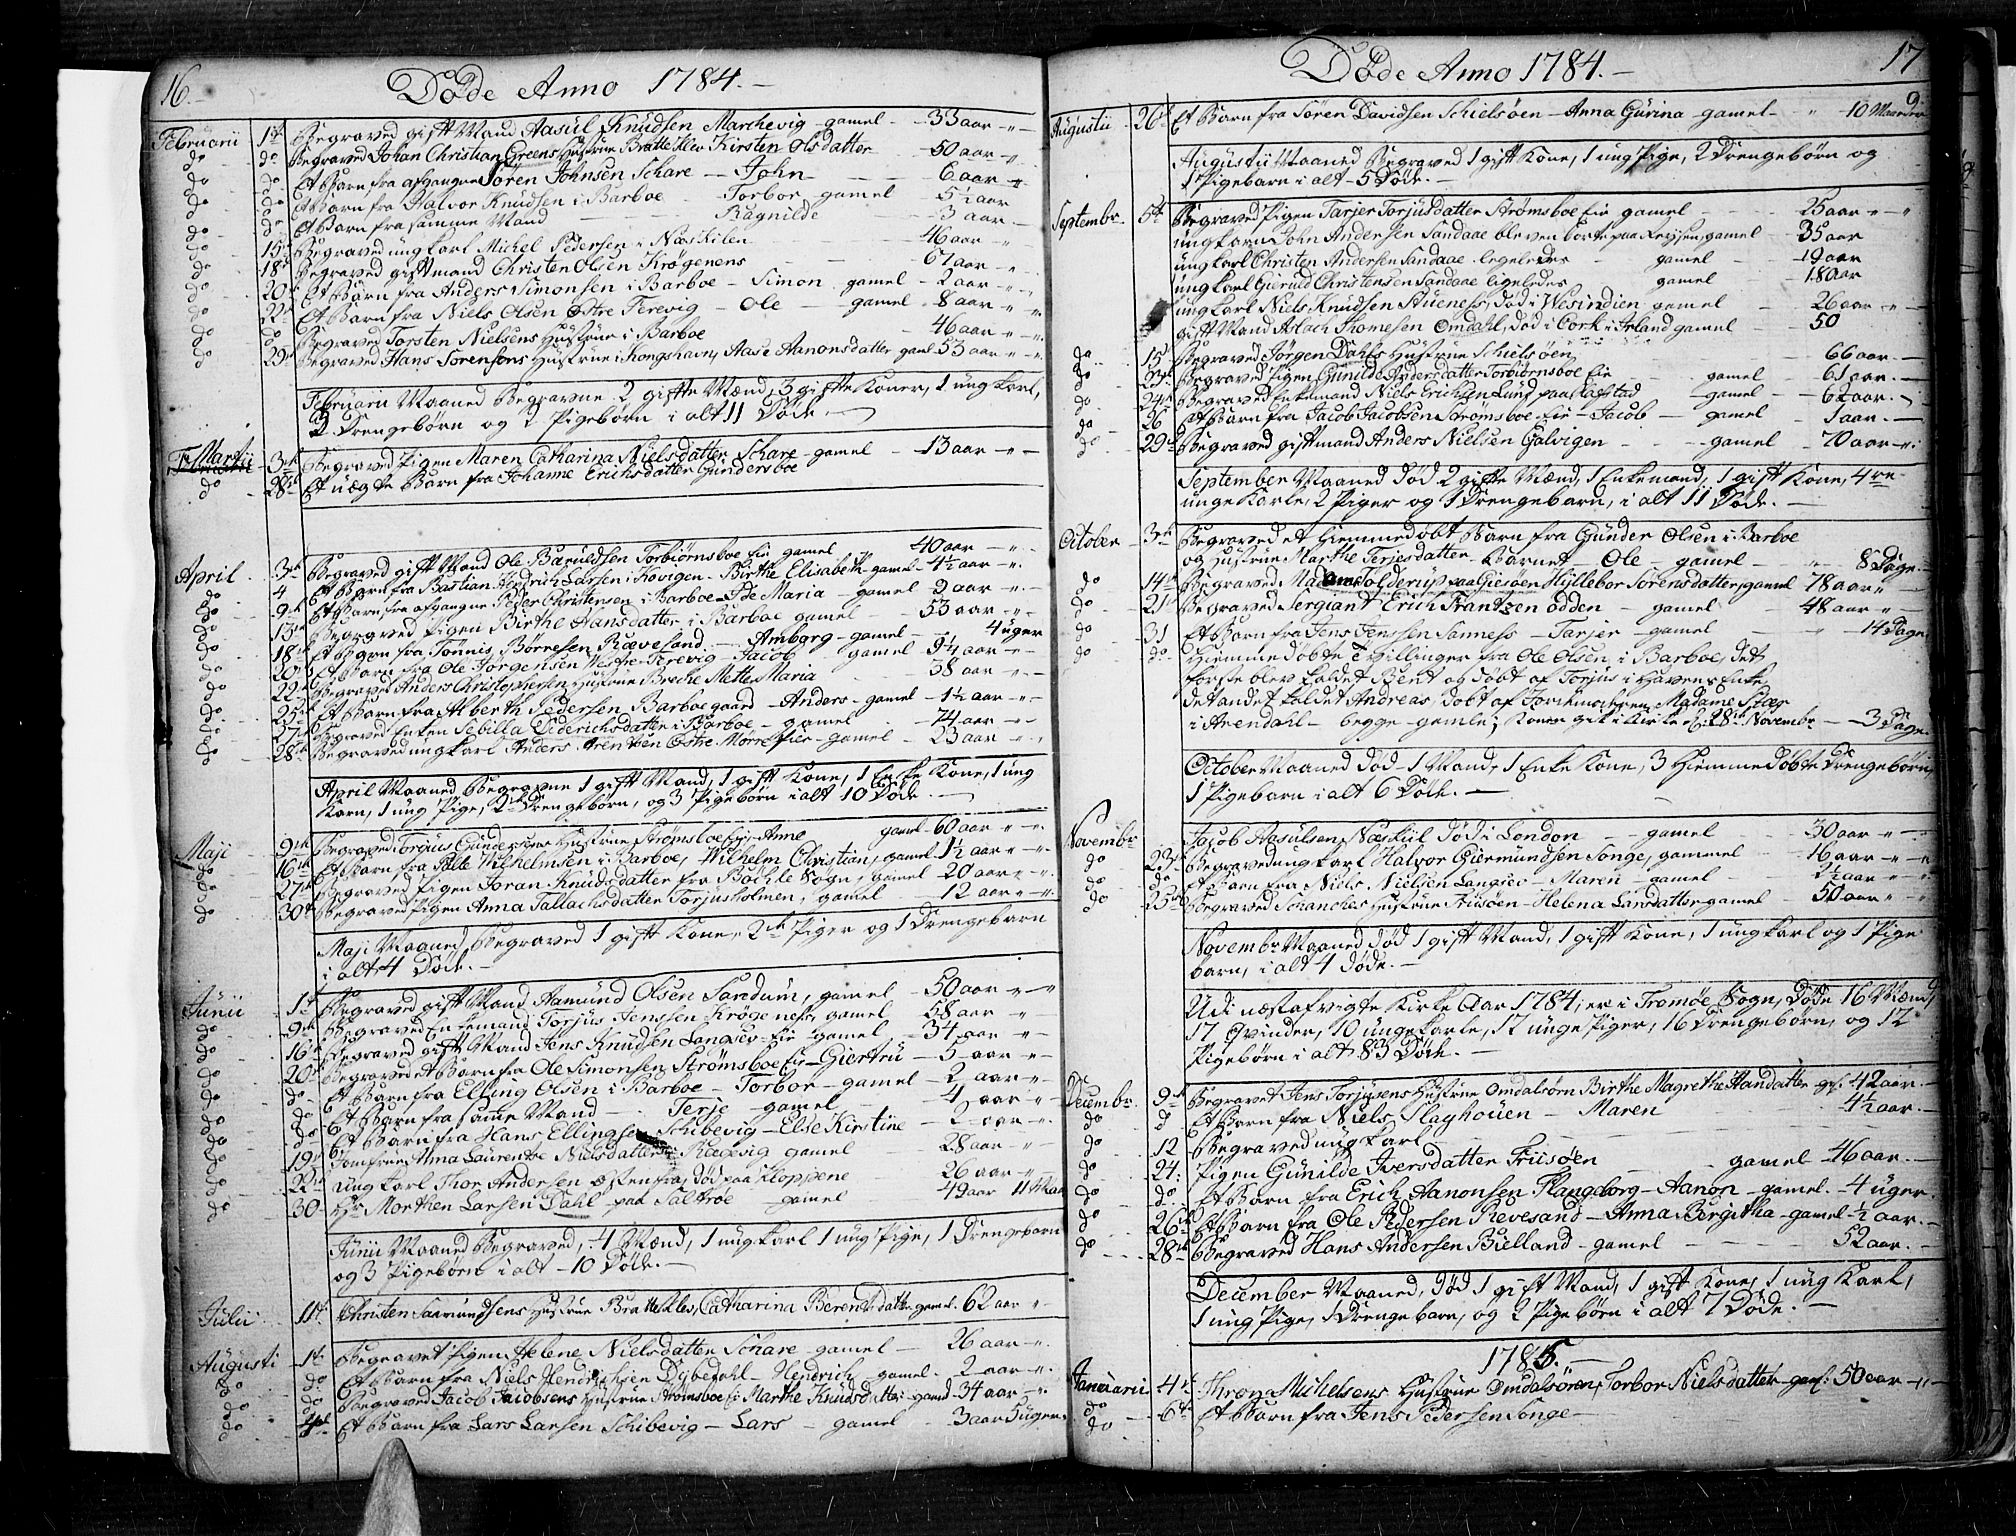 16.
Døde Anno 1784.
Februarii 1te Begraved gift Mand Aasul Knudsen Marchevig gamel 33 aar
do do Begraved Johan Christian Greens Hustrue Bratteklev Kirsten Olsdatter 50 aar
do do Et Barn fra afgangne Søren Johnsen Schare - John 6 aar
do do Et Barn fra Halvor Knudsen i Barboe - Torbor gamel 5½ aar
do do Et Barn fra samme Mand Ragnilde 3 aar
do 15 Begraved ung karl Michel Pedersen i Næskilen 46 aar
do 18 Begraved giftmand Christen Olsen Krøgenes 67 aar
do 20 Et Barn fra Anders Simonsen i Barboe - Simon gamel 2 aar
do 22 Et Barn fra Niels Olsen Østre Ferevig - Ole gamel 8 aar
do do Begraved Torsten Nielsens Hustrue i Barboe 46 aar
do 29 Begraved Hans Sørensens Hustrue i Kongshavn, Aase Aanonsdatter gaml 53 aar
Februarii Maaned Begravne 2 gifte Mænd, 3 gifte Koner, 1 ung karl,
3 Drengebørn og 2 Pigebørn i alt 11 Døde.
Martii 3de Begraved Pigen Maren Catharina Nielsdatter Schare gamel 13 aar
do 28 Et uægte Barn fra Johanne Erichsdatter Gundersboe
April 3de Begraved gift Mand Ole Baruldsen Torbiørnsboe Eie gamel 40 aar
do 4 Et Barn fra Bastian Hendrich Larsen i Kovigen - Birthe Elisabeth gamel 4½ aar
do 9de Et Barn fra afgangne Peder Christensen i Barboe - Ide Maria gamel 2 aar
do 13de Begraved Pigen Birthe Hansdatter i Barboe gamel 53 aar
do 18 Et Barn fra Tønnis Børresen Rævesand - Amborg gamel 4 uger
do 20 Et Barn fra Ole Jørgensen Westre Ferevig - Jacob gamel 9¼ aar
do 22 Begravet Anders Christophersen Hustrue Breche Mette Maria 38 aar
do 25 Et Barn fra Alberth Pedersen Barboe gaard - Anders gamel 1½ aar
do 27 Begraved Enken Sebilla Diderichsdatter i Barboe gamel 74 aar
do 28 Begraved ungkarl Anders Arentsen Østre Mørrefier gamel 23 aar
April Maaned Begravne 1 gift Mand, 1 gift Kone, 1 Enke Kone, 1 ung
Karn, 1 ung Pige, 2 Drengebørn, og 3 Pigebørn i alt 10 Døde.
Maji 9de Begraved Torgius Gundersens Hustrue Strømsboe Eie, Anne gamel 60 aar
do 16 Et Barn fra Palle Wilhelmsen i Barboe, Wilhelm Christian, gamel 1½ aar
do 27 Begraved Pigen Joran Knudsdatter fra Bochle Sogn, gamel 20 aar
do 30 Begraved Pigen Anna Tallachsdatter Torjusholmen, gamel 12 aar
Maji Maaned Begraved 1 gift Kone, 2de Piger og 1 Drengebarn
i alt 4 Døde.
Junii 1te Begraved gift Mand Aamund Olsen Sandum, gamel 50 aar
do 9de Begraved Enkemand Torjus Jenssen Krøgenes, gamel 58 aar
do 16 Begraved gift Mand Jens Knudsen Langsev Eie gamel 34 aar
do 20 Begraved et Barn fra Ole Simonsen Strømsboe Eie - Giertru 5 aar
do do Et Barn fra Elling Olsen i Barboe - Torbor gamel 2 aar
do do Et Barn fra samme Mand - Terje gamel 4 aar
do do Et Barn fra Hans Ellingsen Schibevig - Else Kirstine 2 aar
do 19 Jomfrue Anna Laurentse Nielsdatter i Rægevig gamel 28 aar
do 22 ung karl Thor Andersen Østen fra, død paa Kloppene 26 aar
do 30 Hr Morthen Larsen Dahl paa Saltrøe gamel 49 aar 11 Maan
Junii Maaned Begraved, 4 Mænd, 1 ung karl 1 ung Pige, 1 Drengebarn
og 3 Pigebørn i alt 10 Døde.
Julii 11te Christen Saamundsens Hustrue Brattekløv, Catharina Berentsdatter gamel 62 aar
Augusti 1te Begravet Pigen Helene Nielsdatter Schare gamel 26 aar
do do Et Barn fra Niels Hendrichsen Dybedahl - Hendrich gamel 2 aar
do do Begraved Jacob Jacobsens Hustrue Strømsboe Eie Marthe Knudsdatter gamel 34 aar
do 4de Et Barn fra Lars Larsen Schibevig - Lars gamel 3 aar 5 uger
17
9.
Døde Anno 1784.
Augustii 26 Et Barn fra Søren Davidsen Schielsøen - Anna Gurina gamel 10 Maaneder
Augustii Maaned Begraved 1 gift Kone, 1 ung Pige, 2 Drengebørn og
1 Pigebarn i alt 5 Døde.
Septembr. 5te Begraved Pigen Tarjer Torjusdatter Strømsboe Eie gamel 25 aar
ungkarn John Andersen Sandaae bleven borte paa Reisen, gamel 35 aar
ungkarl Christen Andersen Sandaae ligeledes gamel 19 aar
ungkarl Gieruld Christensen Sandaae ligeledes gamel 18 aar
ungkarl Niels Knudsen Stuenes, død i Westindien gamel 26 aar
gift Mand Aslach Thomesen Omdahl, død i Cork i Irland gamel 50
do 15 Begraved Jørgen Dahls Hustrue Schielsøen 66 aar
do 23 Begraved Pigen Gunilde Andersdatter Torbiørnsboe Eie gamel 61 aar
do 24 Begraved Enkemand Niels Erichsen Lund paa Rogstad gamel 62 aar
do 26 Et Barn fra Jacob Jacobsen Strømsboe Eie - Jacob gamel 1 aar
do 29 Begraved giftmand Anders Nielsen Galvigen gamel 70 aar
September Maaned død 2 gifte Mænd, 1 Enkemand, 1 gift Kone, 4re
unge Karle, 2 Piger og 1 Drengebarn, i alt 11 Døde.
October 3de Begraved et Hiemmedøbt Barn fra Gunder Olsen i Barboe
og Hustrue Marthe Terjesdatter Barnet Ole gamel 8 Dage
do 14 Begraved Madame Tolderup paa Giesøen Hyllebor Sørensdatter gamel 78 aar
do 21 Begraved Sergiant Erich Frantzen Odden gamel 48 aar
do 31 Et Barn fra Jens Jenssen Sannes - Tarjer gamel 14 Dage
do do Hiemme døbte Tvillinger fra Ole Olsen i Barboe, det
første blev kaldet Bent og døbt af Torjus i Havens Enke
det andet kaldet Andreas, døbt af Jordemoderen Madame
i Arendahl - begge gamle, Konen gik i Kirke d. 28 Novembr 3 Dage
October Maaned død 1 Mand, 1 Enke Kone, 3 Hiemme døbte Drengebørn
1 Pigebarn i alt 6 Døde.
Novembr Jacob Aasulsen Næskiil død i London gamel 30 aar
do 22 Begraved ungkarl Halvor Giermundsen Songe, gammel 16 aar
do do Et Barn fra Niels Nielsen Langsev - Maren gamel 2½ aar
do 25 Begraved Schanches Hustrue Friisøen - Helena Larsdatter gamel 50 aar
Novembr Maaned død 1 gift Mand, 1 gift Kone, 1 ungkarl og 1 Pige
barn, i alt 4 døde.
Udi næstafvigte Kirke Aar 1784, er i Tromøe Sogn, døde 16 Mænd,
17 Qvinder, 10 ungekarle, 12 unge Piger, 16 Drengebørn, og 12
Pigebørn i alt 83 Døde.
Decembr. 9de Begravet Jens Torjusens Hustrue Omdalsørn Birthe Magrethe Hansdatter gl. 42 aar
do d Et Barn fra Niels Playhouen - Maren 4½ aar
do 12 Begraved ungkarl
do 24 Pigen Gunilde Iversdatter Friisøen gamel 46 aar
do do Et Barn fra Erich Aanonsen Plangeborg - Aanon gamel 4 uger
do 26 Et Barn fra Ole Pedersen Revesand - Anna Bergitha gamel ½ aar
do 28 Begraved Hans Andersen Bielland gamel 52 aar
December Maaned, død 1 gift Mand, 1 gift Kone, 1 ung Karl,
1 ung Pige, 1 Drengebarn, og 2 Pigebørn i alt 7 Døde.
1785.
Januarii 4de Thron Michelsens Hustrue Omdalsøren, Torbor Nielsdatter gaml: 50 aar
do 6te Et Barn fra Jens Pedersen Songe
do